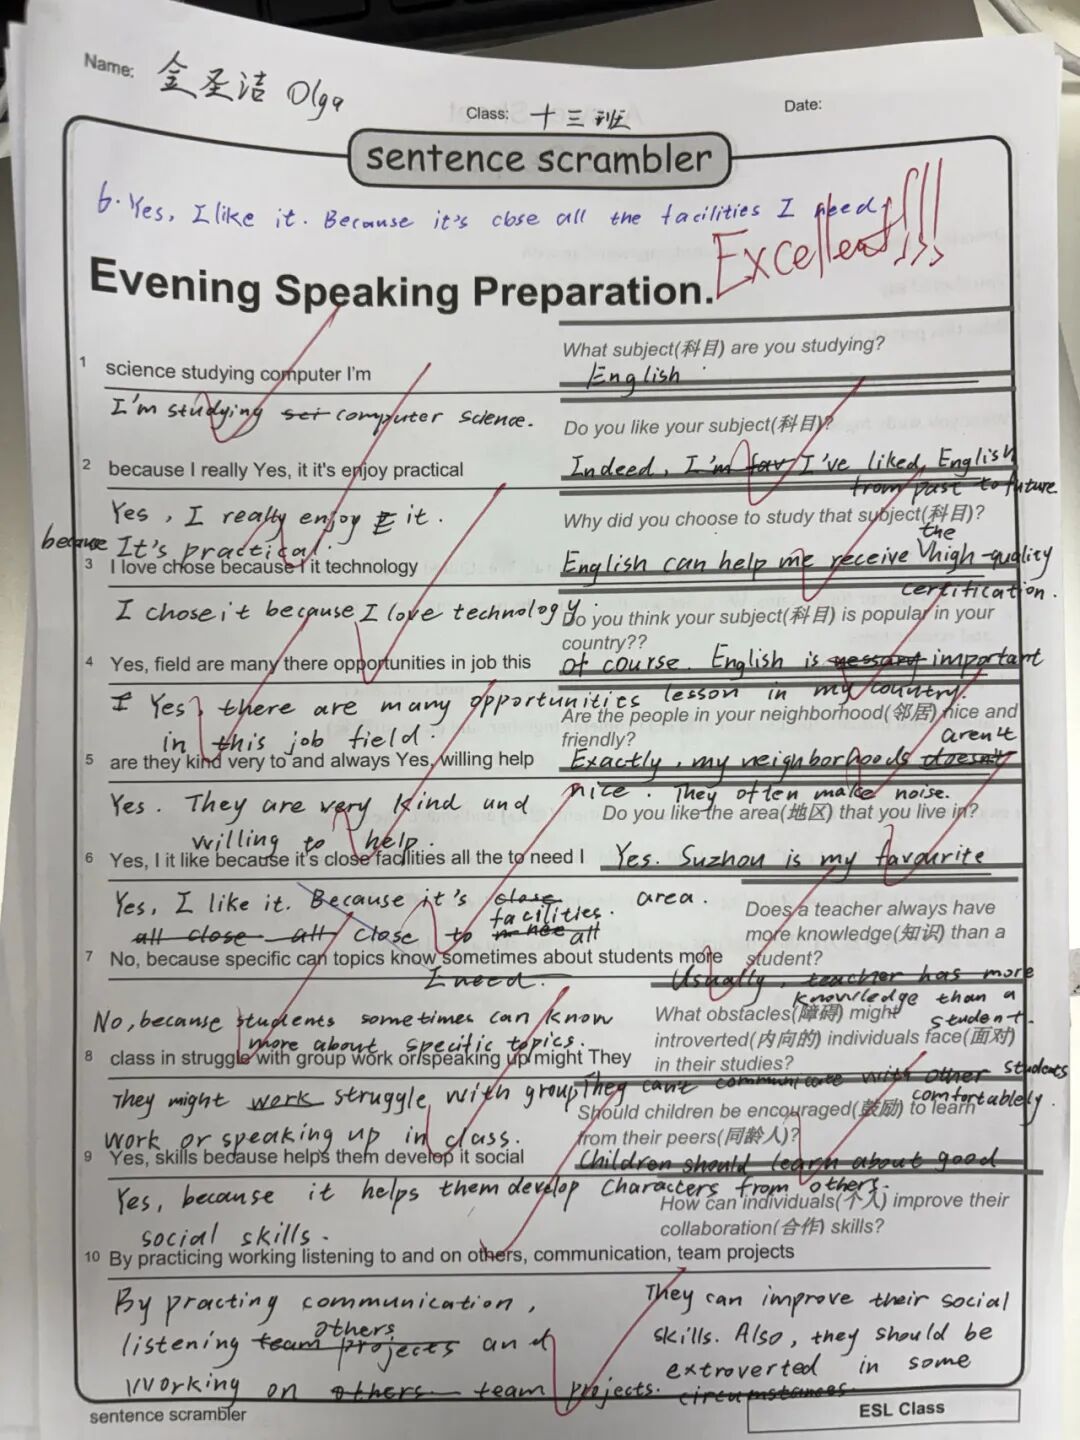 Name: 金圣洁 Olga
Class: 十三班
Date:
sentence scrambler
6. Yes, I like it. Because it's close all the facilities I need.
Excellent!!!
Evening Speaking Preparation.
1 science studying computer I'm
What subject(科目) are you studying?
English
I'm studying sci computer science.
Do you like your subject(科目)?
2 because I really Yes, it it's enjoy practical
Indeed, I'm fav I've liked English
from past to future
Yes, I really enjoy it.
because It's practical.
Why did you choose to study that subject(科目)?
the
3 I love chose because I it technology
English can help me receive high-quality
certification.
I chose it because I love technology.
Do you think your subject(科目) is popular in your
country??
4 Yes, field are many there opportunities in job this
Of course. English is important
lesson in my country.
I Yes, there are many opportunities
in this job field.
Are the people in your neighborhood(邻居) nice and
friendly?
aren't
5 are they kind very to and always Yes, willing help
Exactly, my neighborhoods doesn't
nice. They often make noise.
Yes. They are very kind and
willing to help.
Do you like the area(地区) that you live in?
6 Yes, I it like because it's close facilities all the to need I
Yes. Suzhou is my favourite
area.
Yes, I like it. Because it's close
facilities.
all close all close to all
I need.
Does a teacher always have
more knowledge(知识) than a
student?
7 No, because specific can topics know sometimes about students more
Usually, teacher has more
knowledge than a
student.
No, because students sometimes can know
more about specific topics.
What obstacles(障碍) might
introverted(内向的) individuals face(面对)
in their studies?
8 class in struggle with group work or speaking up might They
They can't communicate with other students
comfortablely.
They might work struggle with group
work or speaking up in class.
Should children be encouraged(鼓励) to learn
from their peers(同龄人)?
9 Yes, skills because helps them develop it social
Children should learn about good
characters from others.
Yes, because it helps them develop
social skills.
How can individuals(个人) improve their
collaboration(合作) skills?
10 By practicing working listening to and on others, communication, team projects
By practing communication,
others
listening team projects and
working on others team projects.
They can improve their social
skills. Also, they should be
extroverted in some
circumstances.
sentence scrambler
ESL Class